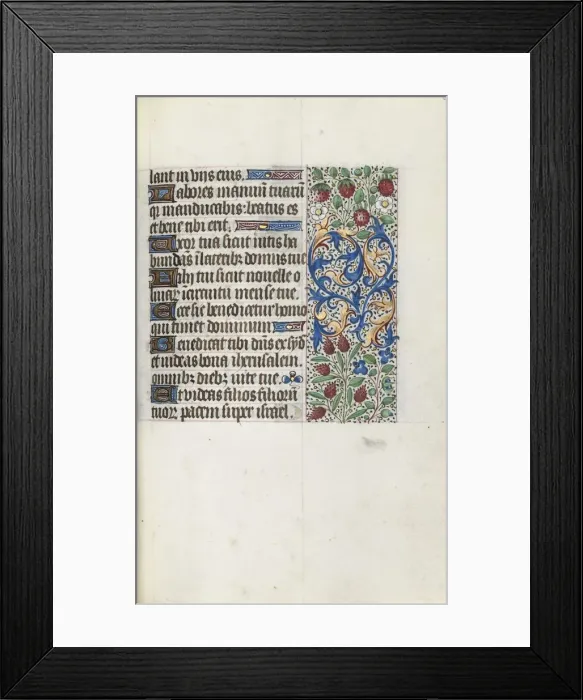 lant in vijs eius.
Labores manuū tuarū
q̄ manducabis: beatus es
et bene tibi erit.
Uxor tua sicut uitis ha
bundās ī lateribz domus tue
Filij tui sicut nouelle o
liuaꝝ ī circuitu mense tue.
Ecce sic benedicetur homo
qui timet dominum
Benedicat tibi dūs ex syō
et uideas bona iherusalem.
omnibz diebz uite tue.
Et uideas filios filiorū
tuorꝝ pacem super israel.